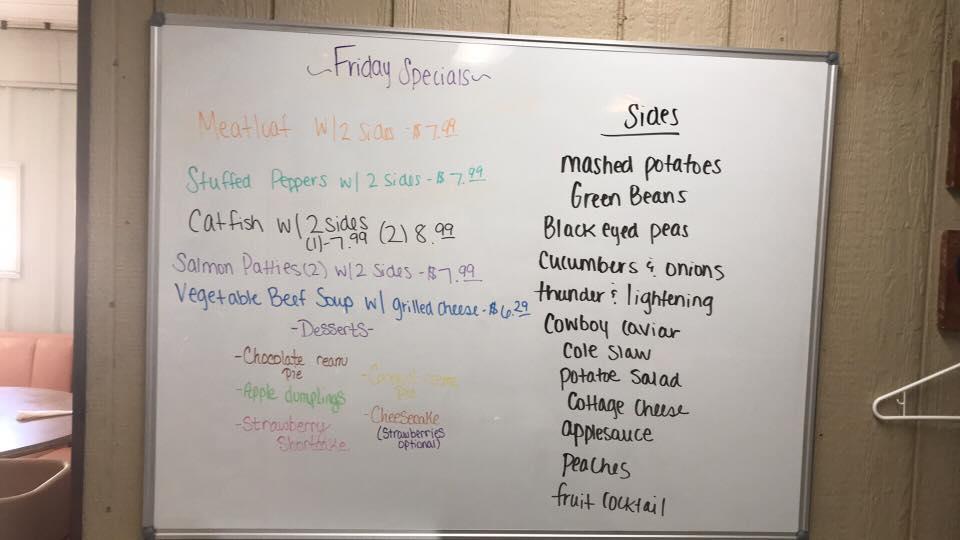 ~Friday Specials~
Meatloaf w/2 sides - $7.99
Stuffed Peppers w/ 2 sides - $7.99
Catfish w/ 2 sides
(1)-7.99 (2) 8.99
Salmon Patties(2) w/2 sides - $7.99
Vegetable Beef Soup w/ grilled cheese - $6.29
-Desserts-
-Chocolate ream
Pie
-Apple dumplings
-Strawberry
Shortcake
-Coconut reme
Pie
-Cheesecake
(Strawberries
optional)
Sides
mashed potatoes
Green Beans
Black eyed peas
Cucumbers & onions
thunder & lightening
Cowboy caviar
Cole slaw
potatoe salad
Cottage cheese
applesauce
peaches
fruit cocktail